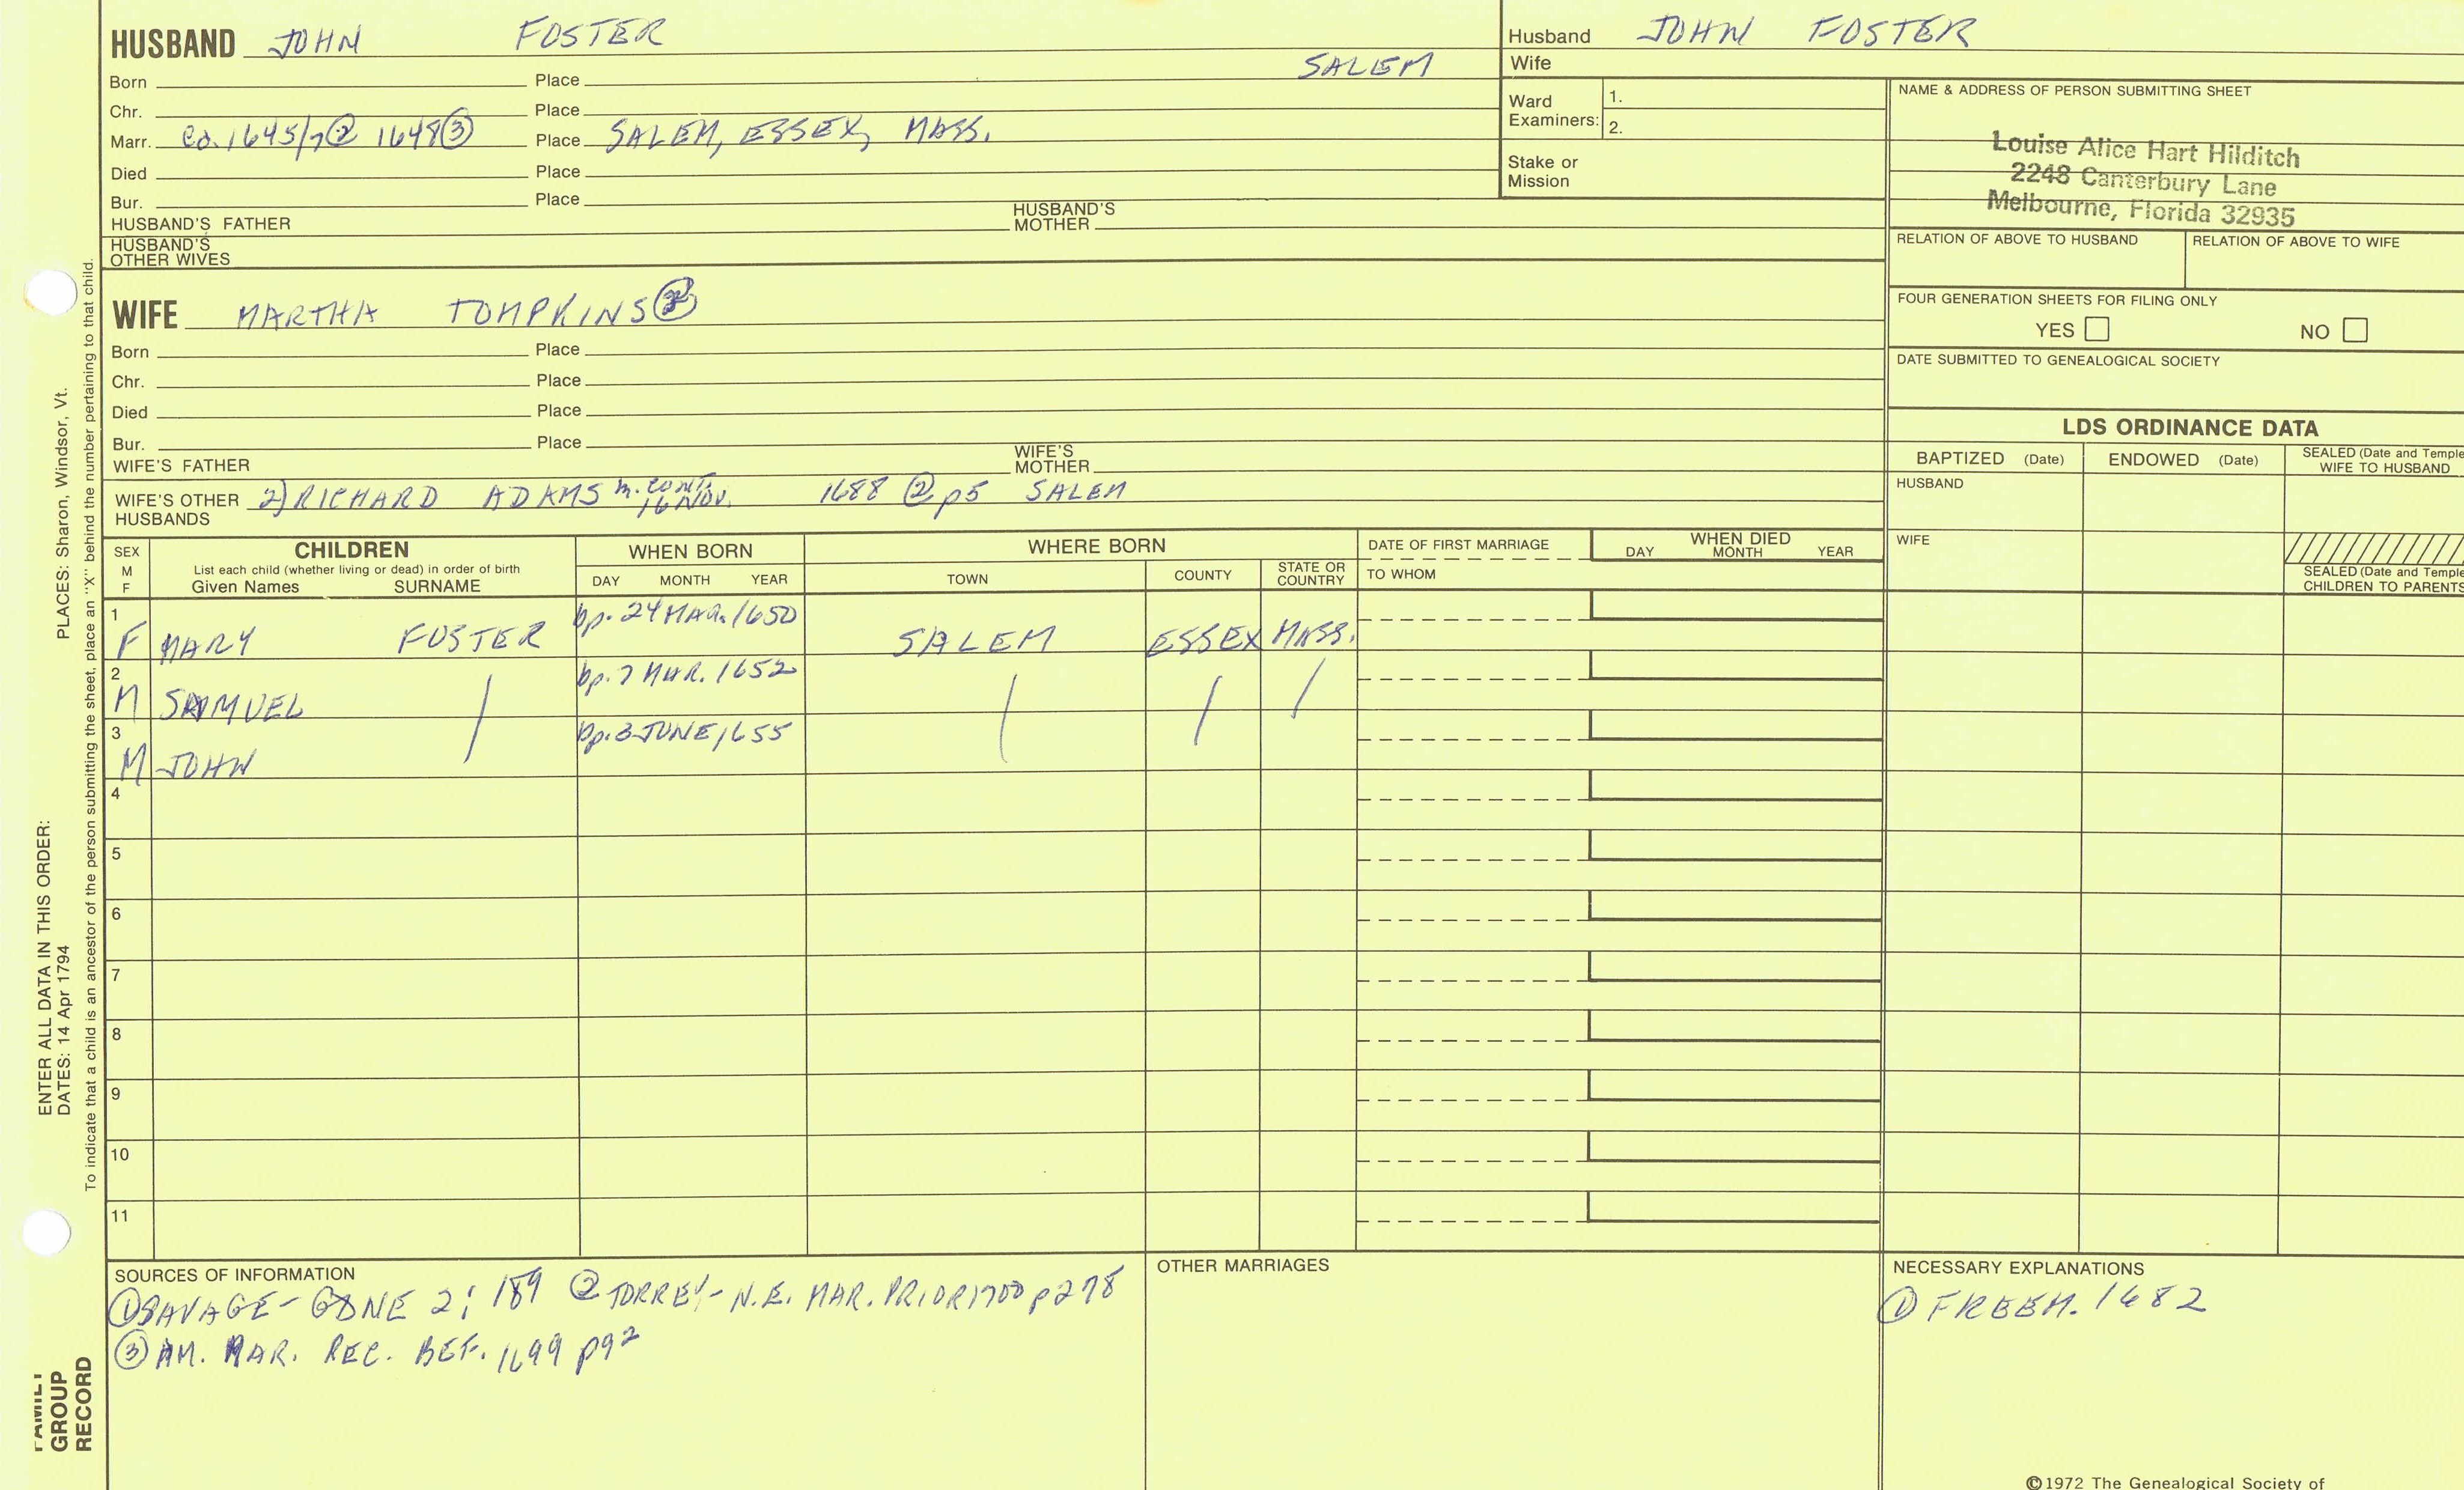 HUSBAND JOHN FOSTER
SALEM
Born Place
Chr. Place
Marr. ca. 1645/7② 1648③ Place SALEM, ESSEX, MASS.
Died Place
Bur. Place
HUSBAND'S FATHER HUSBAND'S MOTHER
HUSBAND'S OTHER WIVES
WIFE MARTHA TOMPKINS②
Born Place
Chr. Place
Died Place
Bur. Place
WIFE'S FATHER WIFE'S MOTHER
WIFE'S OTHER HUSBANDS 2) RICHARD ADAMS m. 16 NOV. 1688 ② p5 SALEM
Husband JOHN FOSTER
Wife
Ward Examiners: 1.
2.
Stake or Mission
NAME & ADDRESS OF PERSON SUBMITTING SHEET
Louise Alice Hart Hilditch
2248 Canterbury Lane
Melbourne, Florida 32935
RELATION OF ABOVE TO HUSBAND RELATION OF ABOVE TO WIFE
FOUR GENERATION SHEETS FOR FILING ONLY
YES NO
DATE SUBMITTED TO GENEALOGICAL SOCIETY
LDS ORDINANCE DATA
BAPTIZED (Date) ENDOWED (Date) SEALED (Date and Temple
WIFE TO HUSBAND
HUSBAND
WIFE
SEALED (Date and Temple
CHILDREN TO PARENTS
SEX M F
CHILDREN
List each child (whether living or dead) in order of birth
Given Names SURNAME
WHEN BORN
DAY MONTH YEAR
WHERE BORN
TOWN COUNTY STATE OR COUNTRY
DATE OF FIRST MARRIAGE
TO WHOM
WHEN DIED
DAY MONTH YEAR
1 F MARY FOSTER bp. 24 MAR. 1650 SALEM ESSEX MASS.
2 M SAMUEL bp. 7 MAR. 1652
3 M JOHN bp. 3 JUNE 1655
4
5
6
7
8
9
10
11
SOURCES OF INFORMATION
① SAVAGE - GDNE 2: 189 ② TORREY - N.E. MAR. PRIOR 1700 p278
③ AM. MAR. REC. BEF. 1699 p92
OTHER MARRIAGES
NECESSARY EXPLANATIONS
① FREEM. 1682
©1972 The Genealogical Society of
PLACES: Sharon, Windsor, Vt.
ENTER ALL DATA IN THIS ORDER:
DATES: 14 Apr 1794
To indicate that a child is an ancestor of the person submitting the sheet, place an "X" behind the number pertaining to that child.
FAMILY
GROUP
RECORD